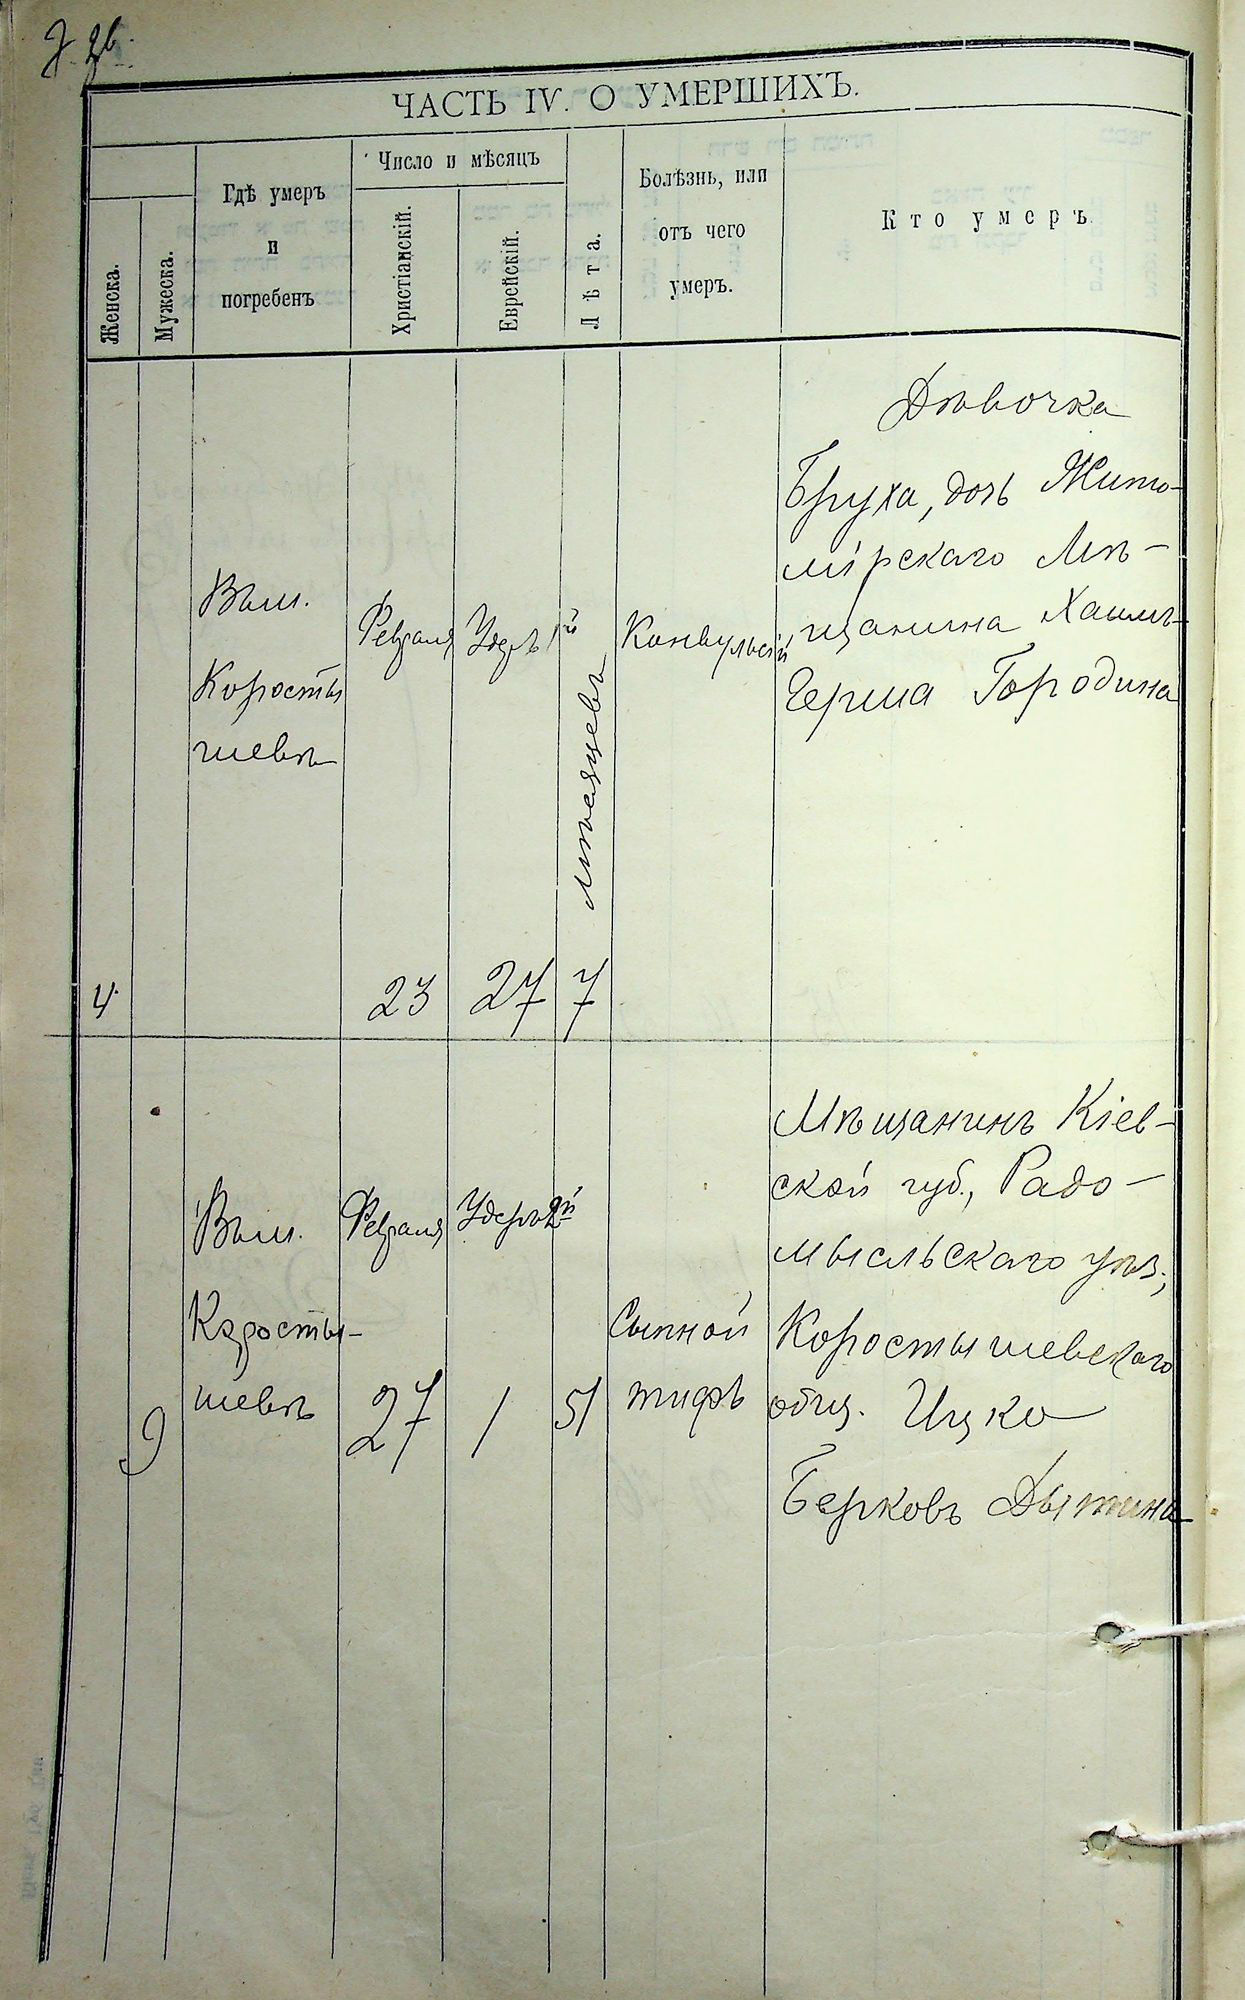 ЧАСТЬ IV. О УМЕРШИХЪ.
Женска.
Мужеска.
Гдѣ умеръ
и
погребенъ
Число и мѣсяцъ
Христіанскій.
Еврейскій.
Лѣта.
Болѣзнь, или
отъ чего
умеръ.
Кто умеръ
4
Въ м.
Коросты
шевѣ
Февраля
23
Удеръ 1й
27
7
мѣсяцевъ
Конвульсій
Дѣвочка
Бруха, дочь Жито-
мірскаго Мѣ-
щанина Хаимъ-
Герша Городина
9
Въ м.
Коросты-
шевѣ
Февраля
27
Удеръ 2й
1
51
Сыпной
тифъ
Мѣщанинъ Кіев-
ской губ., Радо-
мысльскаго уѣз.,
Коростышевскаго
общ. Ицко
Берковъ Дытина